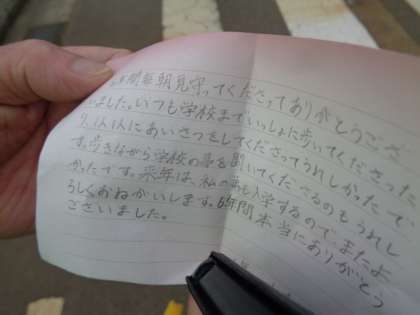 年間毎朝見守ってくださってありがとうござ
いました。いつも学校までいっしょに歩いてくださった
り、1人1人にあいさつをしてくださってうれしかったで
す。歩きながら学校の事を聞いてくださるのもうれし
かったです。来年は、私の弟も入学するので、またよ
ろしくおねがいします。6年間本当にありがとう
ございました。